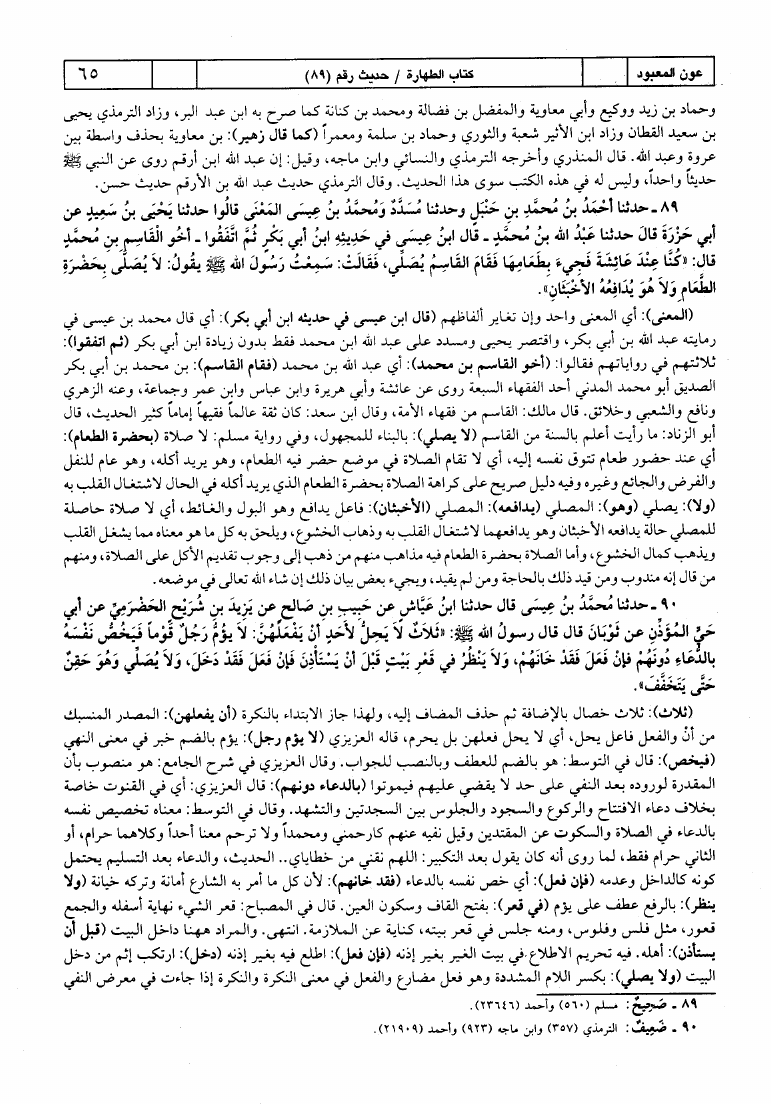 عون المعبود
كتاب الطهارة / حديث رقم (٨٩)
٦٥
وحماد بن زيد ووكيع وأبي معاوية والمفضل بن فضالة ومحمد بن كنانة كما صرح به ابن عبد البر، وزاد الترمذي يحيى
بن سعيد القطان وزاد ابن الأثير شعبة والثوري وحماد بن سلمة ومعمراً (كما قال زهير): بن معاوية بحذف واسطة بين
عروة وعبد الله. قال المنذري وأخرجه الترمذي والنسائي وابن ماجه، وقيل: إن عبد الله ابن أرقم روى عن النبي ﷺ
حديثاً واحداً، وليس له في هذه الكتب سوى هذا الحديث. وقال الترمذي حديث عبد الله بن الأرقم حديث حسن.
٨٩ ـ حدثنا أَحْمَدُ بنُ مُحمَّدِ بنِ حَنْبَلٍ وحدثنا مُسَدَّدٌ وَمُحمَّدُ بنُ عِيسَى المَعْنَى قالُوا حدثنا يَحْيَى بنُ سَعِيدٍ عن
أبي حَزْرَةَ قالَ حدثنا عَبْدُ الله بنُ مُحمَّدٍ ـ قال ابنُ عِيسَى في حَدِيثِهِ ابنُ أبي بَكْرٍ ثُمَّ اتَّفَقُوا ـ أخُو الْقَاسِمِ بنِ مُحمَّدٍ
قال: «كُنَّا عِنْدَ عَائِشَةَ فَجِيءَ بِطَعَامِهَا فَقَامَ الْقَاسِمُ يُصَلِّي، فَقَالَتْ: سَمِعْتُ رَسُولَ الله ﷺ يقُولُ: لاَ يُصَلَّى بِحَضْرَةِ
الطَّعَامِ وَلاَ هُوَ يُدَافِعُهُ الأخْبَثَانِ».
(المعنى): أي المعنى واحد وإن تغاير ألفاظهم (قال ابن عيسى في حديثه ابن أبي بكر): أي قال محمد بن عيسى في
رمايته عبد الله بن أبي بكر، واقتصر يحيى ومسدد على عبد الله ابن محمد فقط بدون زيادة ابن أبي بكر (ثم اتفقوا):
ثلاثتهم في رواياتهم فقالوا: (أخو القاسم بن محمد): أي عبد الله بن محمد (فقام القاسم): بن محمد بن أبي بكر
الصديق أبو محمد المدني أحد الفقهاء السبعة روى عن عائشة وأبي هريرة وابن عباس وابن عمر وجماعة، وعنه الزهري
ونافع والشعبي وخلائق. قال مالك: القاسم من فقهاء الأمة، وقال ابن سعد: كان ثقة عالماً فقيهاً إماماً كثير الحديث، قال
أبو الزناد: ما رأيت أعلم بالسنة من القاسم (لا يصلي): بالبناء للمجهول، وفي رواية مسلم: لا صلاة (بحضرة الطعام):
أي عند حضور طعام تتوق نفسه إليه، أي لا تقام الصلاة في موضع حضر فيه الطعام، وهو يريد أكله، وهو عام للنفل
والفرض والجائع وغيره وفيه دليل صريح على كراهة الصلاة بحضرة الطعام الذي يريد أكله في الحال لاشتغال القلب به
(ولا): يصلي (وهو): المصلي (يدافعه): المصلي (الأخبثان): فاعل يدافع وهو البول والغائط، أي لا صلاة حاصلة
للمصلي حالة يدافعه الأخبثان وهو يدافعهما لاشتغال القلب به وذهاب الخشوع، ويلحق به كل ما هو معناه مما يشغل القلب
ويذهب كمال الخشوع، وأما الصلاة بحضرة الطعام فيه مذاهب منهم من ذهب إلى وجوب تقديم الأكل على الصلاة، ومنهم
من قال إنه مندوب ومن قيد ذلك بالحاجة ومن لم يقيد، ويجيء بعض بيان ذلك إن شاء الله تعالى في موضعه.
٩٠ ـ حدثنا مُحمَّدُ بنُ عِيسَى قال حدثنا ابنُ عَيَّاشٍ عن حَبِيبِ بنِ صَالحٍ عن يَزِيدَ بنِ شُرَيْحٍ الحَضْرَمِيِّ عن أبي
حَيٍّ المُؤَذِّنِ عن ثَوْبَانَ قال قال رسولُ الله ﷺ: «ثَلاَثٌ لاَ يَحِلُّ لأحَدٍ أنْ يَفْعَلَهُنَّ: لاَ يؤُمُّ رَجُلٌ قَوْماً فَيَخُصُّ نَفْسَهُ
بالدُّعَاءِ دُونَهُمْ فإنْ فَعَلَ فَقَدْ خَانَهُمْ، وَلاَ يَنْظُرُ في قَعْرِ بَيْتٍ قَبْلَ أنْ يَسْتَأْذِنَ فإنْ فَعَلَ فَقَدْ دَخَلَ، وَلاَ يُصَلِّي وَهُوَ حَقِنٌ
حَتَّى يَتَخَفَّفَ».
(ثلاث): ثلاث خصال بالإضافة ثم حذف المضاف إليه، ولهذا جاز الابتداء بالنكرة (أن يفعلهن): المصدر المنسبك
من أنْ والفعل فاعل يحل، أي لا يحل فعلهن بل يحرم، قاله العزيزي (لا يؤم رجل): يؤم بالضم خبر في معنى النهي
(فيخص): قال في التوسط: هو بالضم للعطف وبالنصب للجواب. وقال العزيزي في شرح الجامع: هو منصوب بأن
المقدرة لوروده بعد النفي على حد لا يقضي عليهم فيموتوا (بالدعاء دونهم): قال العزيزي: أي في القنوت خاصة
بخلاف دعاء الافتتاح والركوع والسجود والجلوس بين السجدتين والتشهد. وقال في التوسط: معناه تخصيص نفسه
بالدعاء في الصلاة والسكوت عن المقتدين وقيل نفيه عنهم كارحمني ومحمداً ولا ترحم معنا أحداً وكلاهما حرام، أو
الثاني حرام فقط، لما روى أنه كان يقول بعد التكبير: اللهم نقني من خطاياي.. الحديث، والدعاء بعد التسليم يحتمل
كونه كالداخل وعدمه (فإن فعل): أي خص نفسه بالدعاء (فقد خانهم): لأن كل ما أمر به الشارع أمانة وتركه خيانة (ولا
ينظر): بالرفع عطف على يؤم (في قعر): بفتح القاف وسكون العين. قال في المصباح: قعر الشيء نهاية أسفله والجمع
قعور، مثل فلس وفلوس، ومنه جلس في قعر بيته، كناية عن الملازمة. انتهى. والمراد ههنا داخل البيت (قبل أن
يستأذن): أهله. فيه تحريم الاطلاع في بيت الغير بغير إذنه (فإن فعل): اطلع فيه بغير إذنه (دخل): ارتكب إثم من دخل
البيت (ولا يصلي): بكسر اللام المشددة وهو فعل مضارع والفعل في معنى النكرة والنكرة إذا جاءت في معرض النفي
٨٩ ـ صَحِيحٌ: مسلم (٥٦٠) وأحمد (٢٣٦٤٦).
٩٠ ـ ضَعِيفٌ: الترمذي (٣٥٧) وابن ماجه (٩٢٣) وأحمد (٢١٩٠٩).